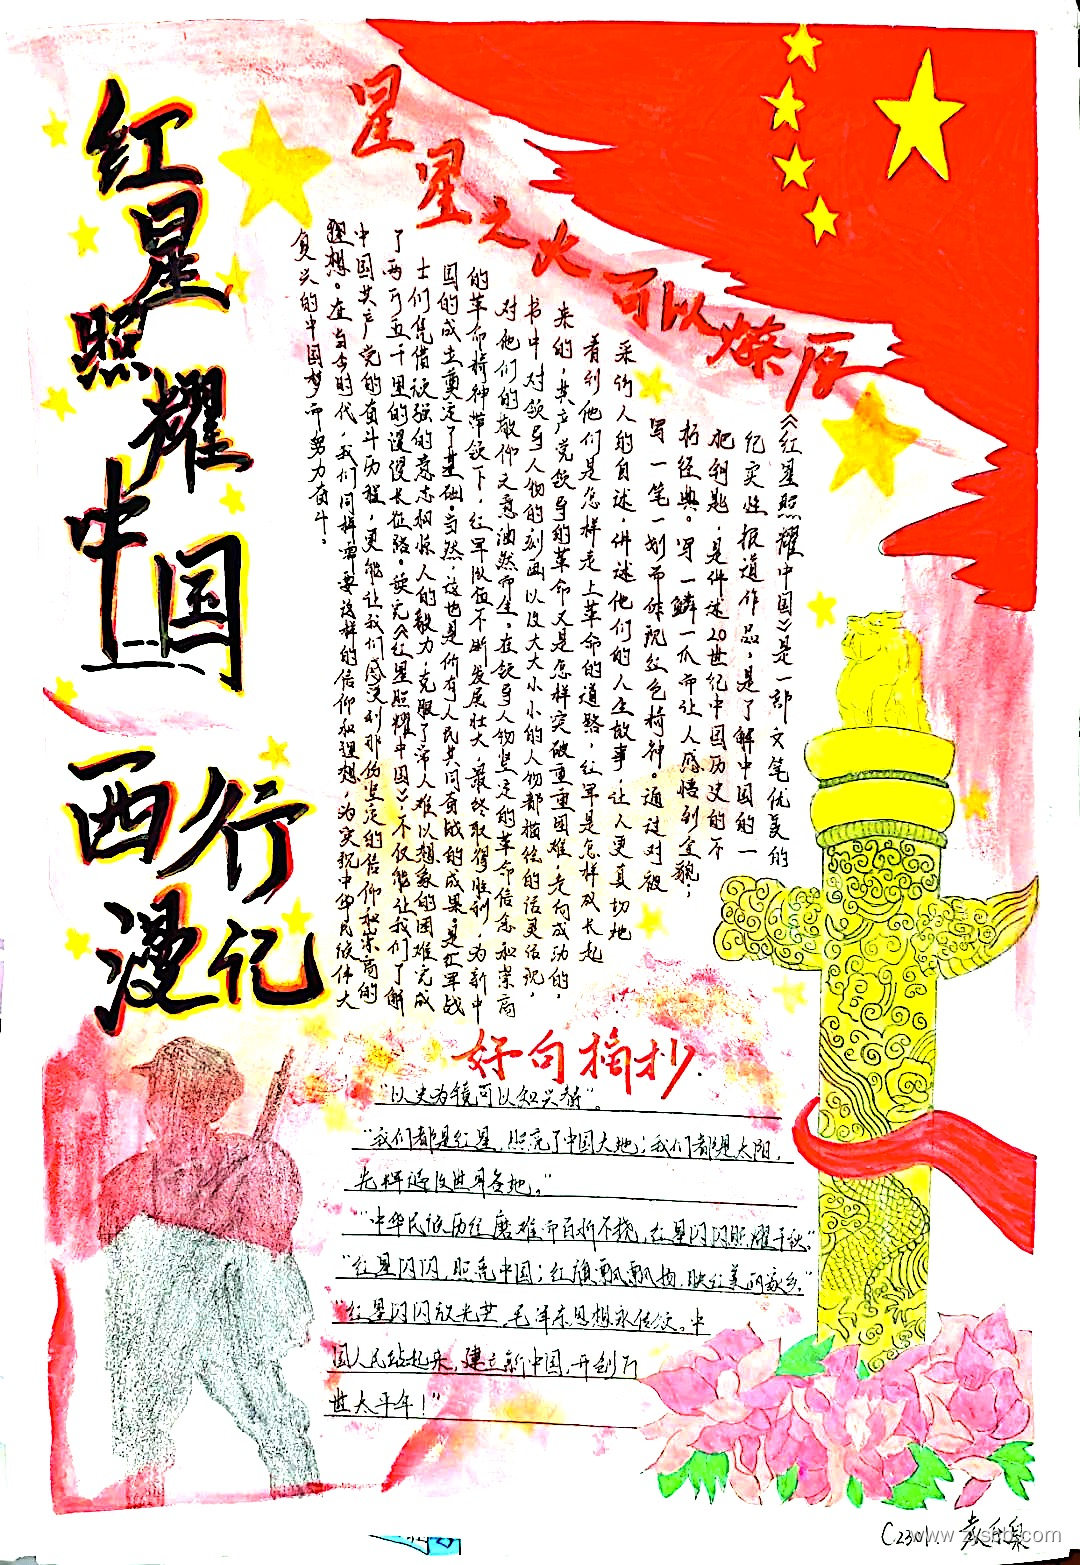 红星照耀中国
西行
漫记
星星之火可以燎原
《红星照耀中国》是一部文笔优美的
纪实性报道作品，是了解中国的一
把钥匙，是件述20世纪中国历史的不
朽经典。写一鳞一爪而让人感悟到全貌，
写一笔一划而体现红色精神。通过对被
采访人的自述，件述他们的人生故事，让人更真切地
看到他们是怎样走上革命的道路，红军是怎样成长起
来的，共产党领导的革命又是怎样突破重重困难，走向成功的，
书中对领导人物的刻画以及大大小小的人物都描绘的活灵活现，
对他们的敬仰之意油然而生。在领导人物坚定的革命信念和崇高
的革命精神带领下，红军队伍不断发展壮大，最终取得胜利，为新中
国的成立奠定了基础。当然，这也是所有人民共同奋战的成果。是红军战
士们凭借顽强的意志和惊人的毅力，克服了常人难以想象的困难，完成
了两万五千里的漫漫长征路。读完《红星照耀中国》，不仅能让我们了解
中国共产党的奋斗历程，更能让我们感受到那份坚定的信仰和崇高的
理想。在当今时代，我们同样需要这样的信仰和理想，为实现中华民族伟大
复兴的中国梦而努力奋斗。
好句摘抄
“以史为镜可以知兴替”。
“我们都是红星，照亮了中国大地；我们都是太阳，
光辉遍及世界各地。”
“中华民族历经磨难而百折不挠，红星闪闪照耀千秋。”
“红星闪闪，照亮中国；红旗飘飘扬，映红美丽家乡。”
“红星闪闪放光芒，毛泽东思想永传颂。中
国人民站起来，建立新中国，开创万
世太平年！”
C2301.
www.zxshb.com